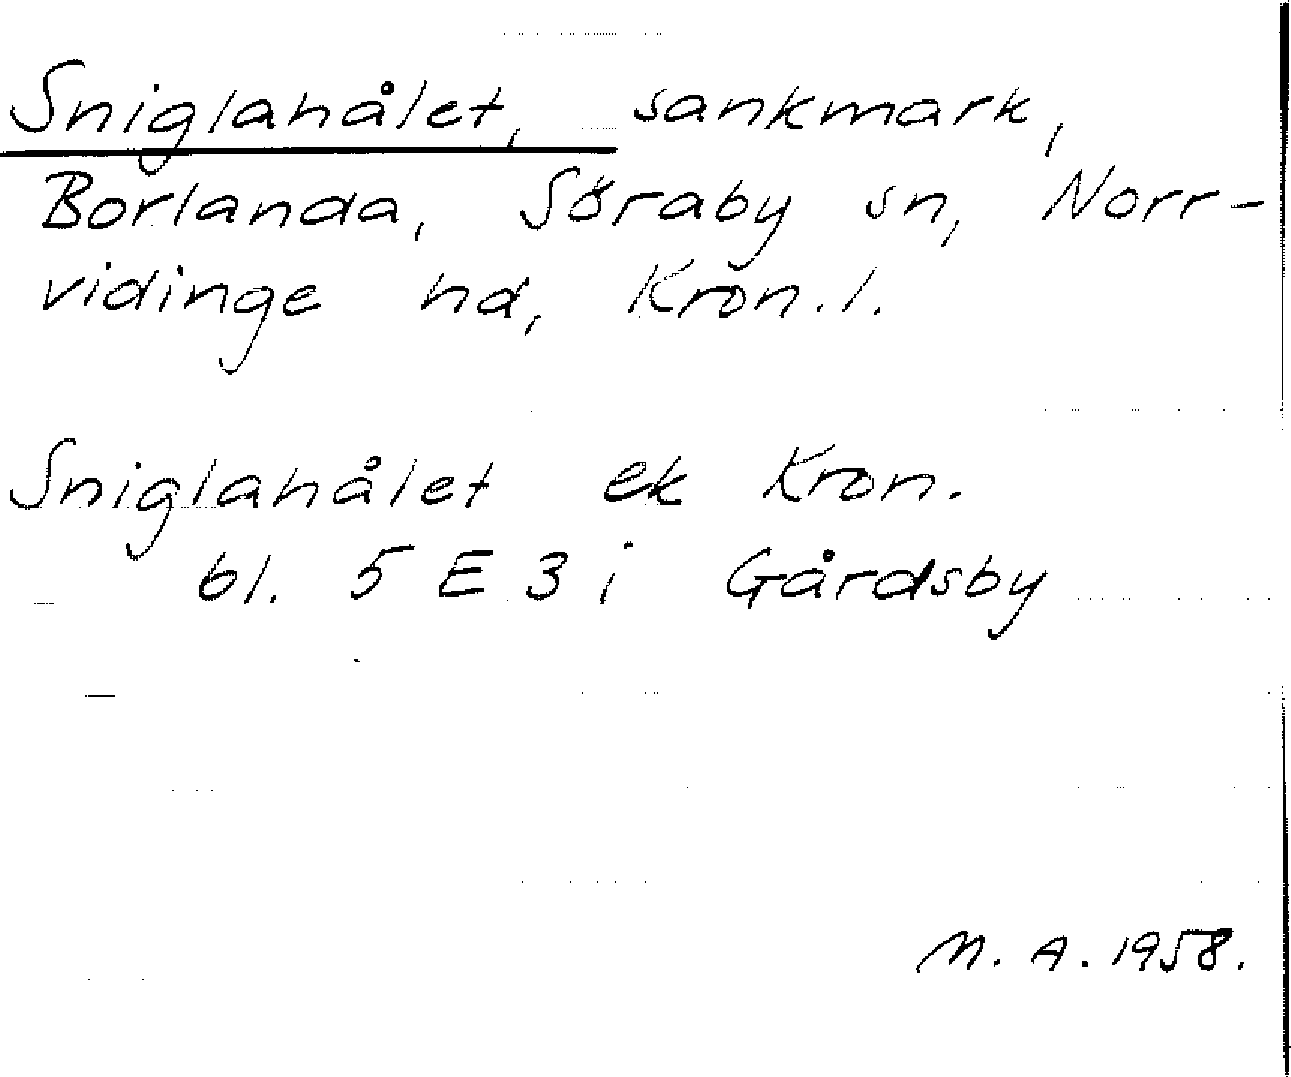 Sniglahålet, sankmark,
Borlanda, Söraby sn, Norr-
vidinge hd, Kron. l.
Sniglahålet ek Kron.
bl. 5 E 3 i Gårdsby
M. A. 1958.